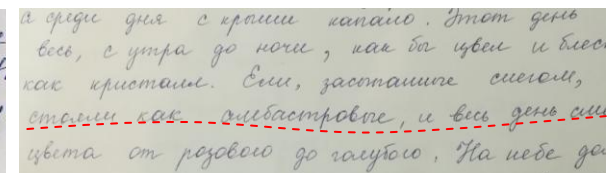 а среди дня с крыши капало. Этот день
весь, с утра до ночи, как бы цвел и блес
как кристалл. Ели, засыпанные снегом,
стояли как алебастровые, и весь день сме
цвета от розового до голубого. На небе до